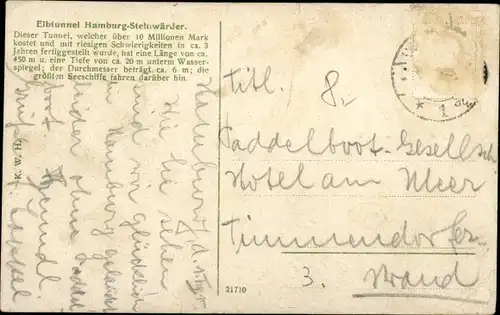 Elbtunnel Hamburg-Steinwärder.
Dieser Tunnel, welcher über 10 Millionen Mark
kostet und mit riesigen Schwierigkeiten in ca. 3
Jahren fertiggestellt wurde, hat eine Länge von ca.
450 m u. eine Tiefe von ca. 20 m unterm Wasser-
spiegel; der Durchmesser beträgt ca. 6 m; die
größten Seeschiffe fahren darüber hin.
Hamburg, d.
Wie Sie sehen
sind wir glücklich
in Hamburg gelandet
leider ohne
boot.
Grüße
K. W. H.
Titl. 8.
Paddelboot-Gesellsch.
Hotel am Meer
Timmendorfer
3. Strand
21710